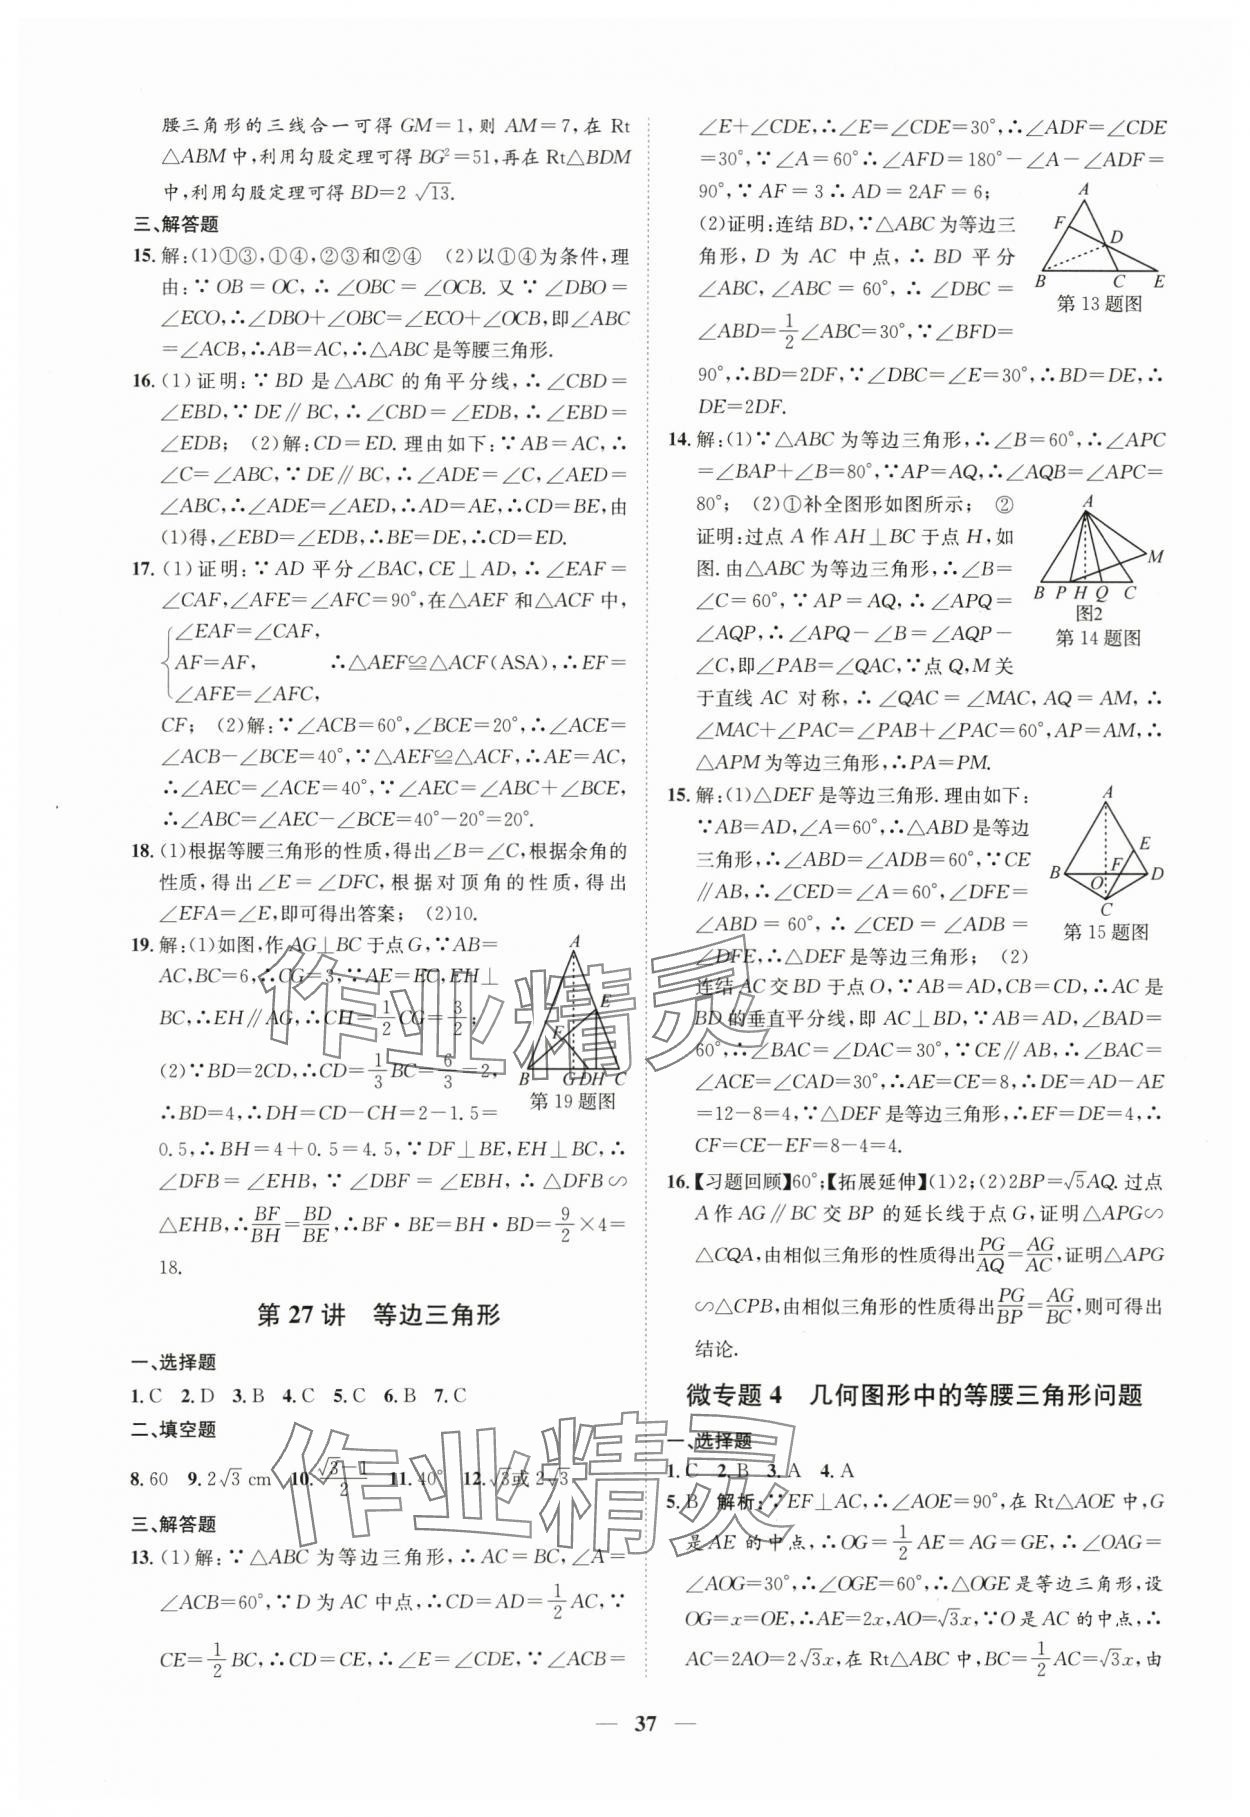 腰三角形的三线合一可得 GM=1,则 AM=7,在 Rt
△ABM中,利用勾股定理可得BG²=51,再在Rt△BDM
中,利用勾股定理可得BD=2√13.
三、解答题
15.解:(1)①③,①④,②③和②④　(2)以①④为条件,理
由:∵OB=OC,∴∠OBC=∠OCB. 又∵∠DBO=
∠ECO,∴∠DBO+∠OBC=∠ECO+∠OCB,即∠ABC
=∠ACB,∴AB=AC,∴△ABC是等腰三角形.
16.(1)证明:∵BD 是△ABC 的角平分线,∴∠CBD=
∠EBD,∵DE∥BC,∴∠CBD=∠EDB,∴∠EBD=
∠EDB;　(2)解:CD=ED. 理由如下:∵AB=AC,∴
∠C=∠ABC,∵DE∥BC,∴∠ADE=∠C,∠AED=
∠ABC,∴∠ADE=∠AED,∴AD=AE,∴CD=BE,由
(1)得,∠EBD=∠EDB,∴BE=DE,∴CD=ED.
17.(1)证明:∵AD 平分∠BAC,CE⊥AD,∴∠EAF=
∠CAF,∠AFE=∠AFC=90°,在△AEF 和△ACF 中,
∠EAF=∠CAF,
AF=AF,　　∴△AEF≌△ACF(ASA),∴EF=
∠AFE=∠AFC,
CF;　(2)解:∵∠ACB=60°,∠BCE=20°,∴∠ACE=
∠ACB-∠BCE=40°,∵△AEF≌△ACF,∴AE=AC,
∴∠AEC=∠ACE=40°,∵∠AEC=∠ABC+∠BCE,
∴∠ABC=∠AEC-∠BCE=40°-20°=20°.
18.(1)根据等腰三角形的性质,得出∠B=∠C,根据余角的
性质,得出∠E=∠DFC,根据对顶角的性质,得出
∠EFA=∠E,即可得出答案;　(2)10.
19.解:(1)如图,作AG⊥BC于点G,∵AB=
AC,BC=6,∴CG=3,∵AE=EC,EH⊥
BC,∴EH∥AG,∴CH=1/2CG=3/2;
(2)∵BD=2CD,∴CD=1/3BC=6/3=2,
∴BD=4,∴DH=CD-CH=2-1.5=
A
E
F
B G D H C
第19题图
0.5,∴BH=4+0.5=4.5,∵DF⊥BE,EH⊥BC,∴
∠DFB=∠EHB=90°,∵∠DBF=∠EBH,∴∠DFB∽
△EHB,∴BF/BH=BD/BE,∴BF·BE=BH·BD=9/2×4=
18.
第 27 讲　等边三角形
一、选择题
1.C　2.D　3.B　4.C　5.C　6.B　7.C
二、填空题
8.60　9.2√3 cm　10.(√3-1)/2　11.40°　12.√3或2√3
三、解答题
13.(1)解:∵△ABC 为等边三角形,∴AC=BC,∠A=
∠ACB=60°,∵D为AC 中点,∴CD=AD=1/2AC,∵
CE=1/2BC,∴CD=CE,∴∠E=∠CDE,∵∠ACB=
∠E+∠CDE,∴∠E=∠CDE=30°,∴∠ADF=∠CDE
=30°,∵∠A=60°∴∠AFD=180°-∠A-∠ADF=
90°,∵AF=3∴AD=2AF=6;
(2)证明:连结 BD,∵△ABC为等边三
角形,D 为 AC 中点,∴BD 平分
∠ABC,∠ABC=60°,∴∠DBC=
∠ABD=1/2∠ABC=30°,∵∠BFD=
A
F
D
B C E
第13题图
90°,∴BD=2DF,∵∠DBC=∠E=30°,∴BD=DE,∴
DE=2DF.
14.解:(1)∵△ABC为等边三角形,∴∠B=60°,∴∠APC
=∠BAP+∠B=80°,∵AP=AQ,∴∠AQB=∠APC=
80°;　(2)①补全图形如图所示;　②
证明:过点A作AH⊥BC于点H,如
图.由△ABC为等边三角形,∴∠B=
∠C=60°,∵AP=AQ,∴∠APQ=
∠AQP,∴∠APQ-∠B=∠AQP-
∠C,即∠PAB=∠QAC,∵点Q,M关
A
M
B P H Q C
图2
第14题图
于直线 AC 对称,∴∠QAC=∠MAC,AQ=AM,∴
∠MAC+∠PAC=∠PAB+∠PAC=60°,AP=AM,∴
△APM为等边三角形,∴PA=PM.
15.解:(1)△DEF是等边三角形.理由如下:
∵AB=AD,∠A=60°,∴△ABD是等边
三角形,∴∠ABD=∠ADB=60°,∵CE
∥AB,∴∠CED=∠A=60°,∠DFE=
∠ABD=60°,∴∠CED=∠ADB=
∠DFE,∴△DEF是等边三角形;　(2)
A
E
F
B O D
C
第15题图
连结AC交BD于点O,∵AB=AD,CB=CD,∴AC是
BD的垂直平分线,即AC⊥BD,∵AB=AD,∠BAD=
60°,∴∠BAC=∠DAC=30°,∵CE∥AB,∴∠BAC=
∠ACE=∠CAD=30°,∴AE=CE=8,∴DE=AD-AE
=12-8=4,∵△DEF是等边三角形,∴EF=DE=4,∴
CF=CE-EF=8-4=4.
16.【习题回顾】60°;【拓展延伸】(1)2;(2)2BP=√5AQ. 过点
A作AG∥BC交BP的延长线于点G,证明△APG∽
△CQA,由相似三角形的性质得出PG/AQ=AG/AC,证明△APG
∽△CPB,由相似三角形的性质得出PG/BP=AG/BC,则可得出
结论.
微专题 4　几何图形中的等腰三角形问题
一、选择题
1.C　2.B　3.A　4.A
5.B　解析:∵EF⊥AC,∴∠AOE=90°,在Rt△AOE中,G
是AE的中点,∴OG=1/2AE=AG=GE,∴∠OAG=
∠AOG=30°,∴∠OGE=60°,∴△OGE是等边三角形,设
OG=x=OE,∴AE=2x,AO=√3x,∵O是AC的中点,∴
AC=2AO=2√3x,在Rt△ABC中,BC=1/2AC=√3x,由
— 37 —
作业精灵
作业精灵